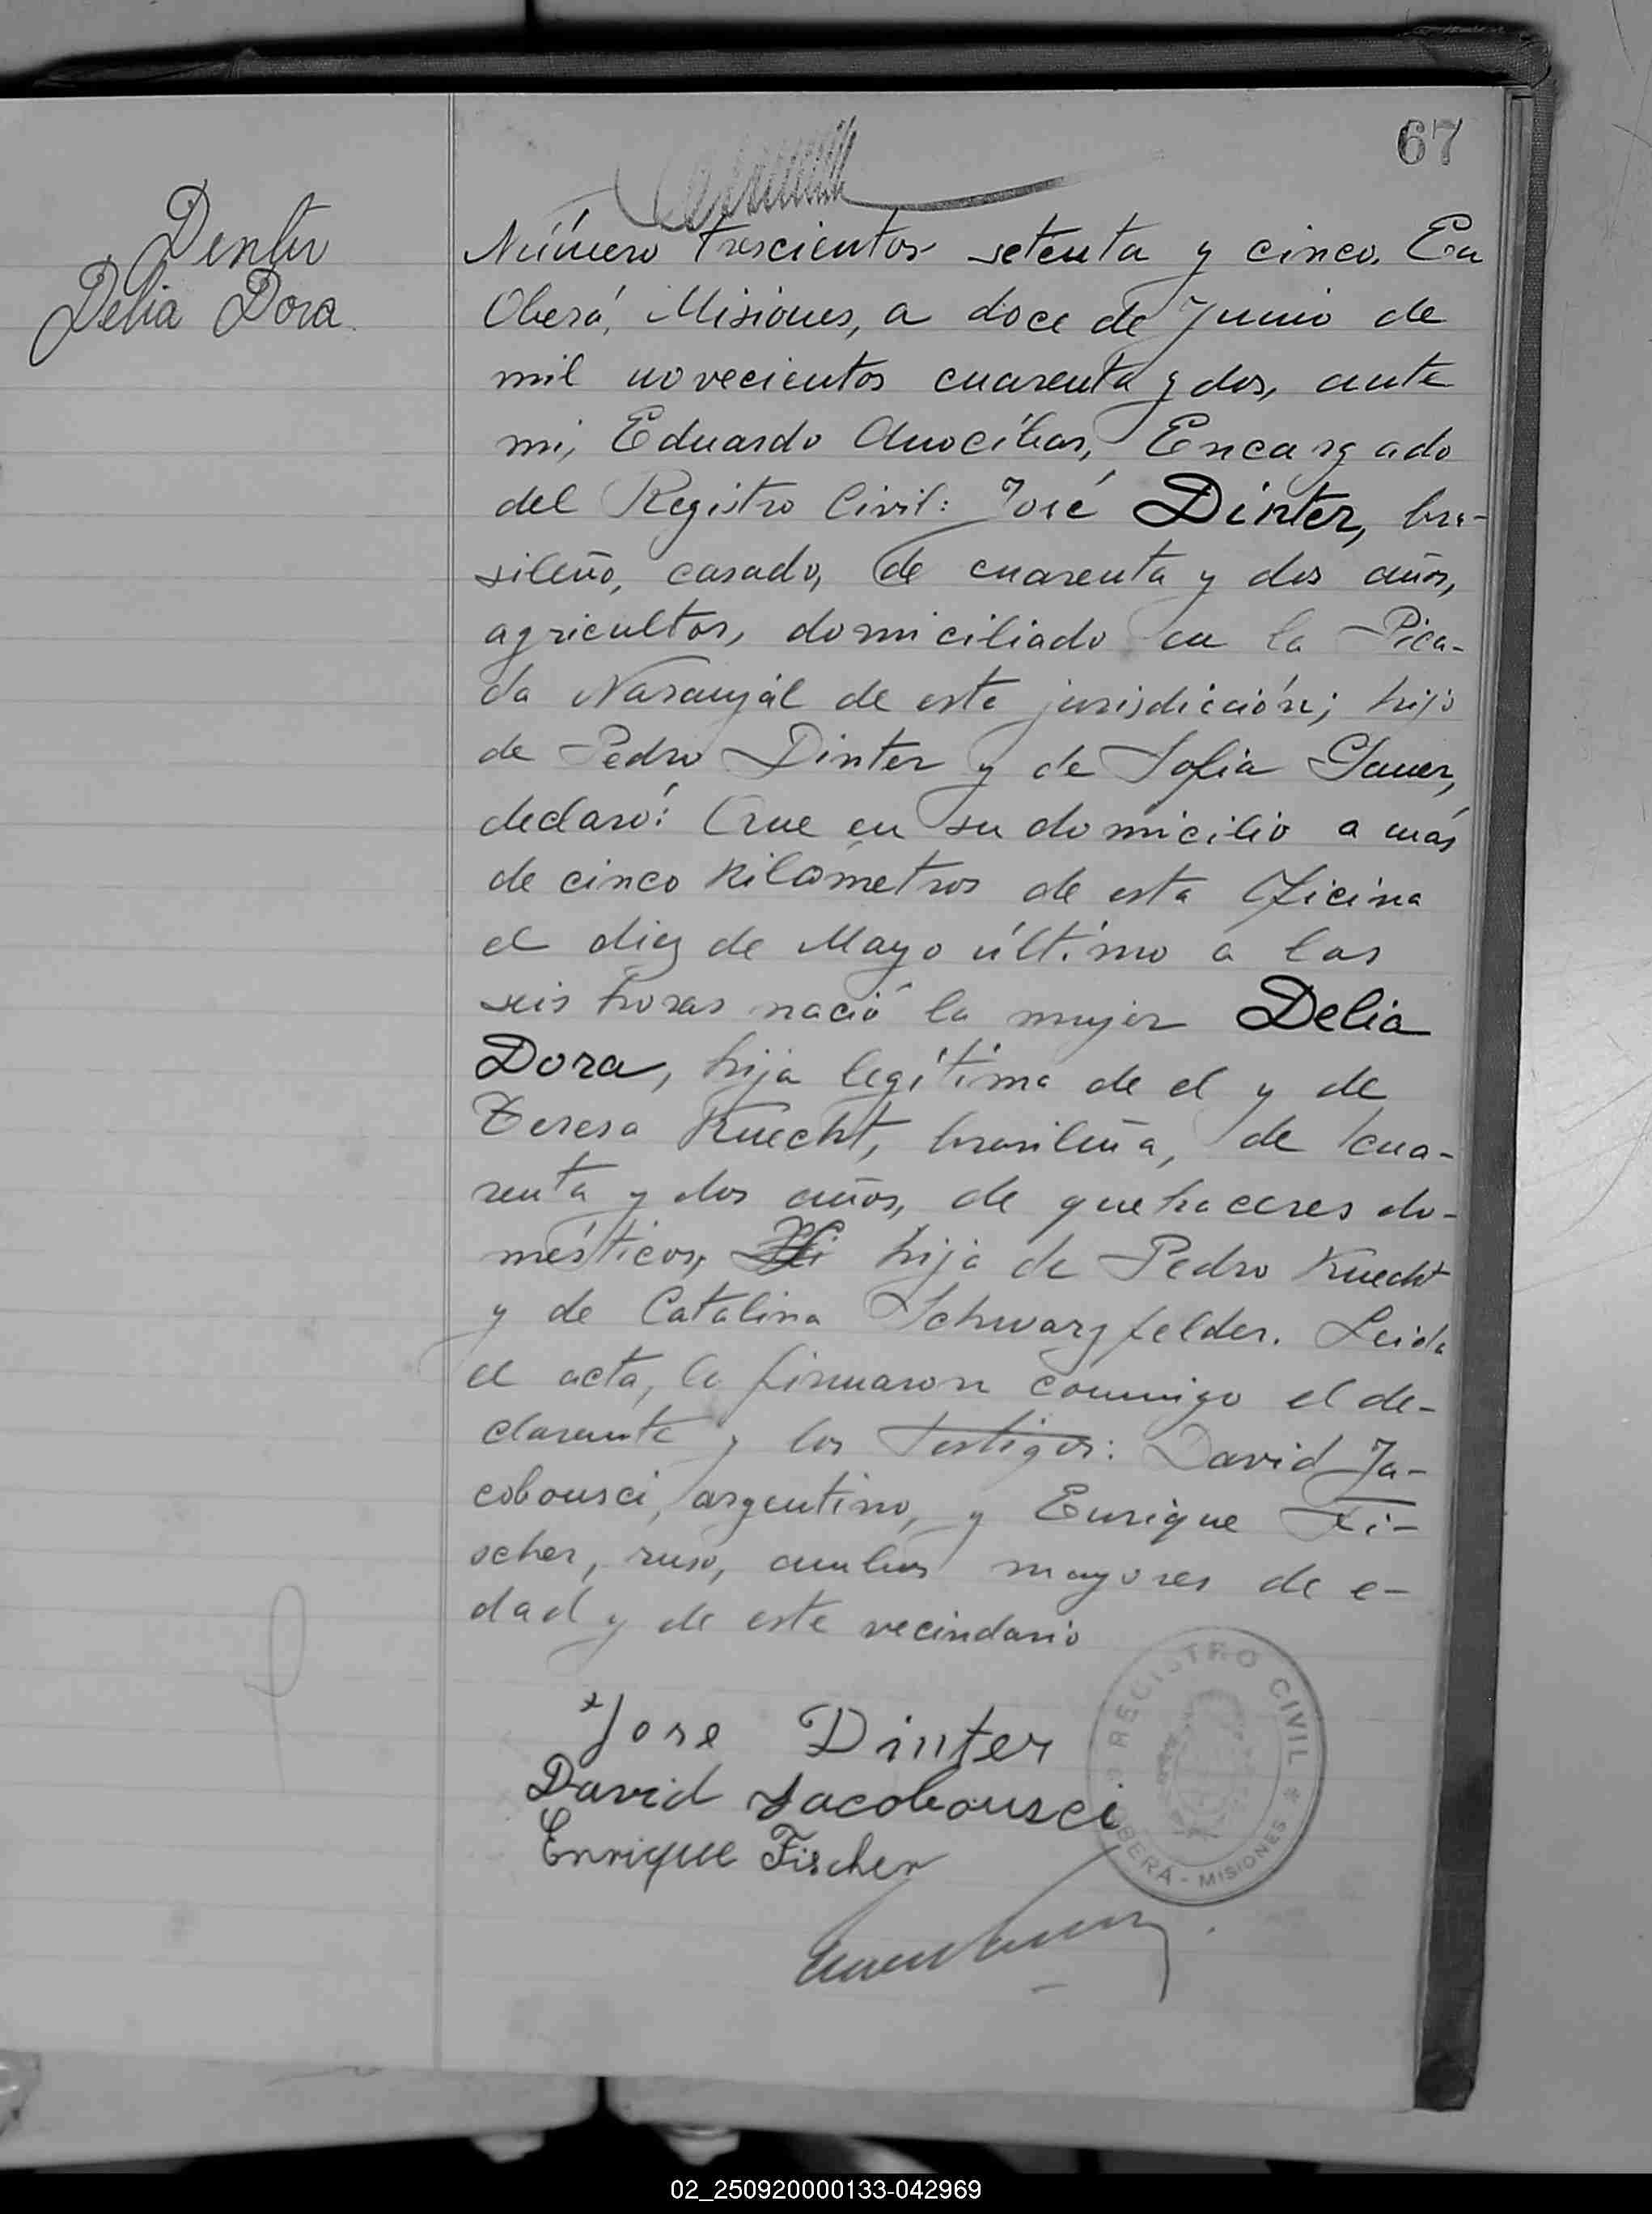 67
Denter
Delia Dora.
Número trescientos setenta y cinco. En
Oberá, Misiones, a doce de Junio de
mil novecientos cuarenta y dos, ante
mi, Eduardo Anocíbar, Encargado
del Registro Civil: José Dinter, bra-
sileño, casado, de cuarenta y dos años,
agricultor, domiciliado en la Pica-
da Naranjál de esta jurisdicción; hijo
de Pedro Dinter y de Sofia Gauer,
declaró: Que en su domicilio a más
de cinco kilómetros de esta Oficina
el diez de Mayo último a las
seis horas nació la mujer Delia
Dora, hija legítima de el y de
Teresa Knecht, brasileña, de cua-
renta y dos años, de quehaceres do-
mésticos, hija de Pedro Knecht
y de Catalina Schwarzfelder. Leida
el acta, la firmaron conmigo el de-
clarante y los testigos: David Ja-
cobousci, argentino, y Enrique Fi-
scher, ruso, ambos mayores de e-
dad y de este vecindario
Jose Dinter
David Jacobousci
Enrique Fischer
REGISTRO CIVIL
OBERÁ - MISIONES
02_250920000133-042969